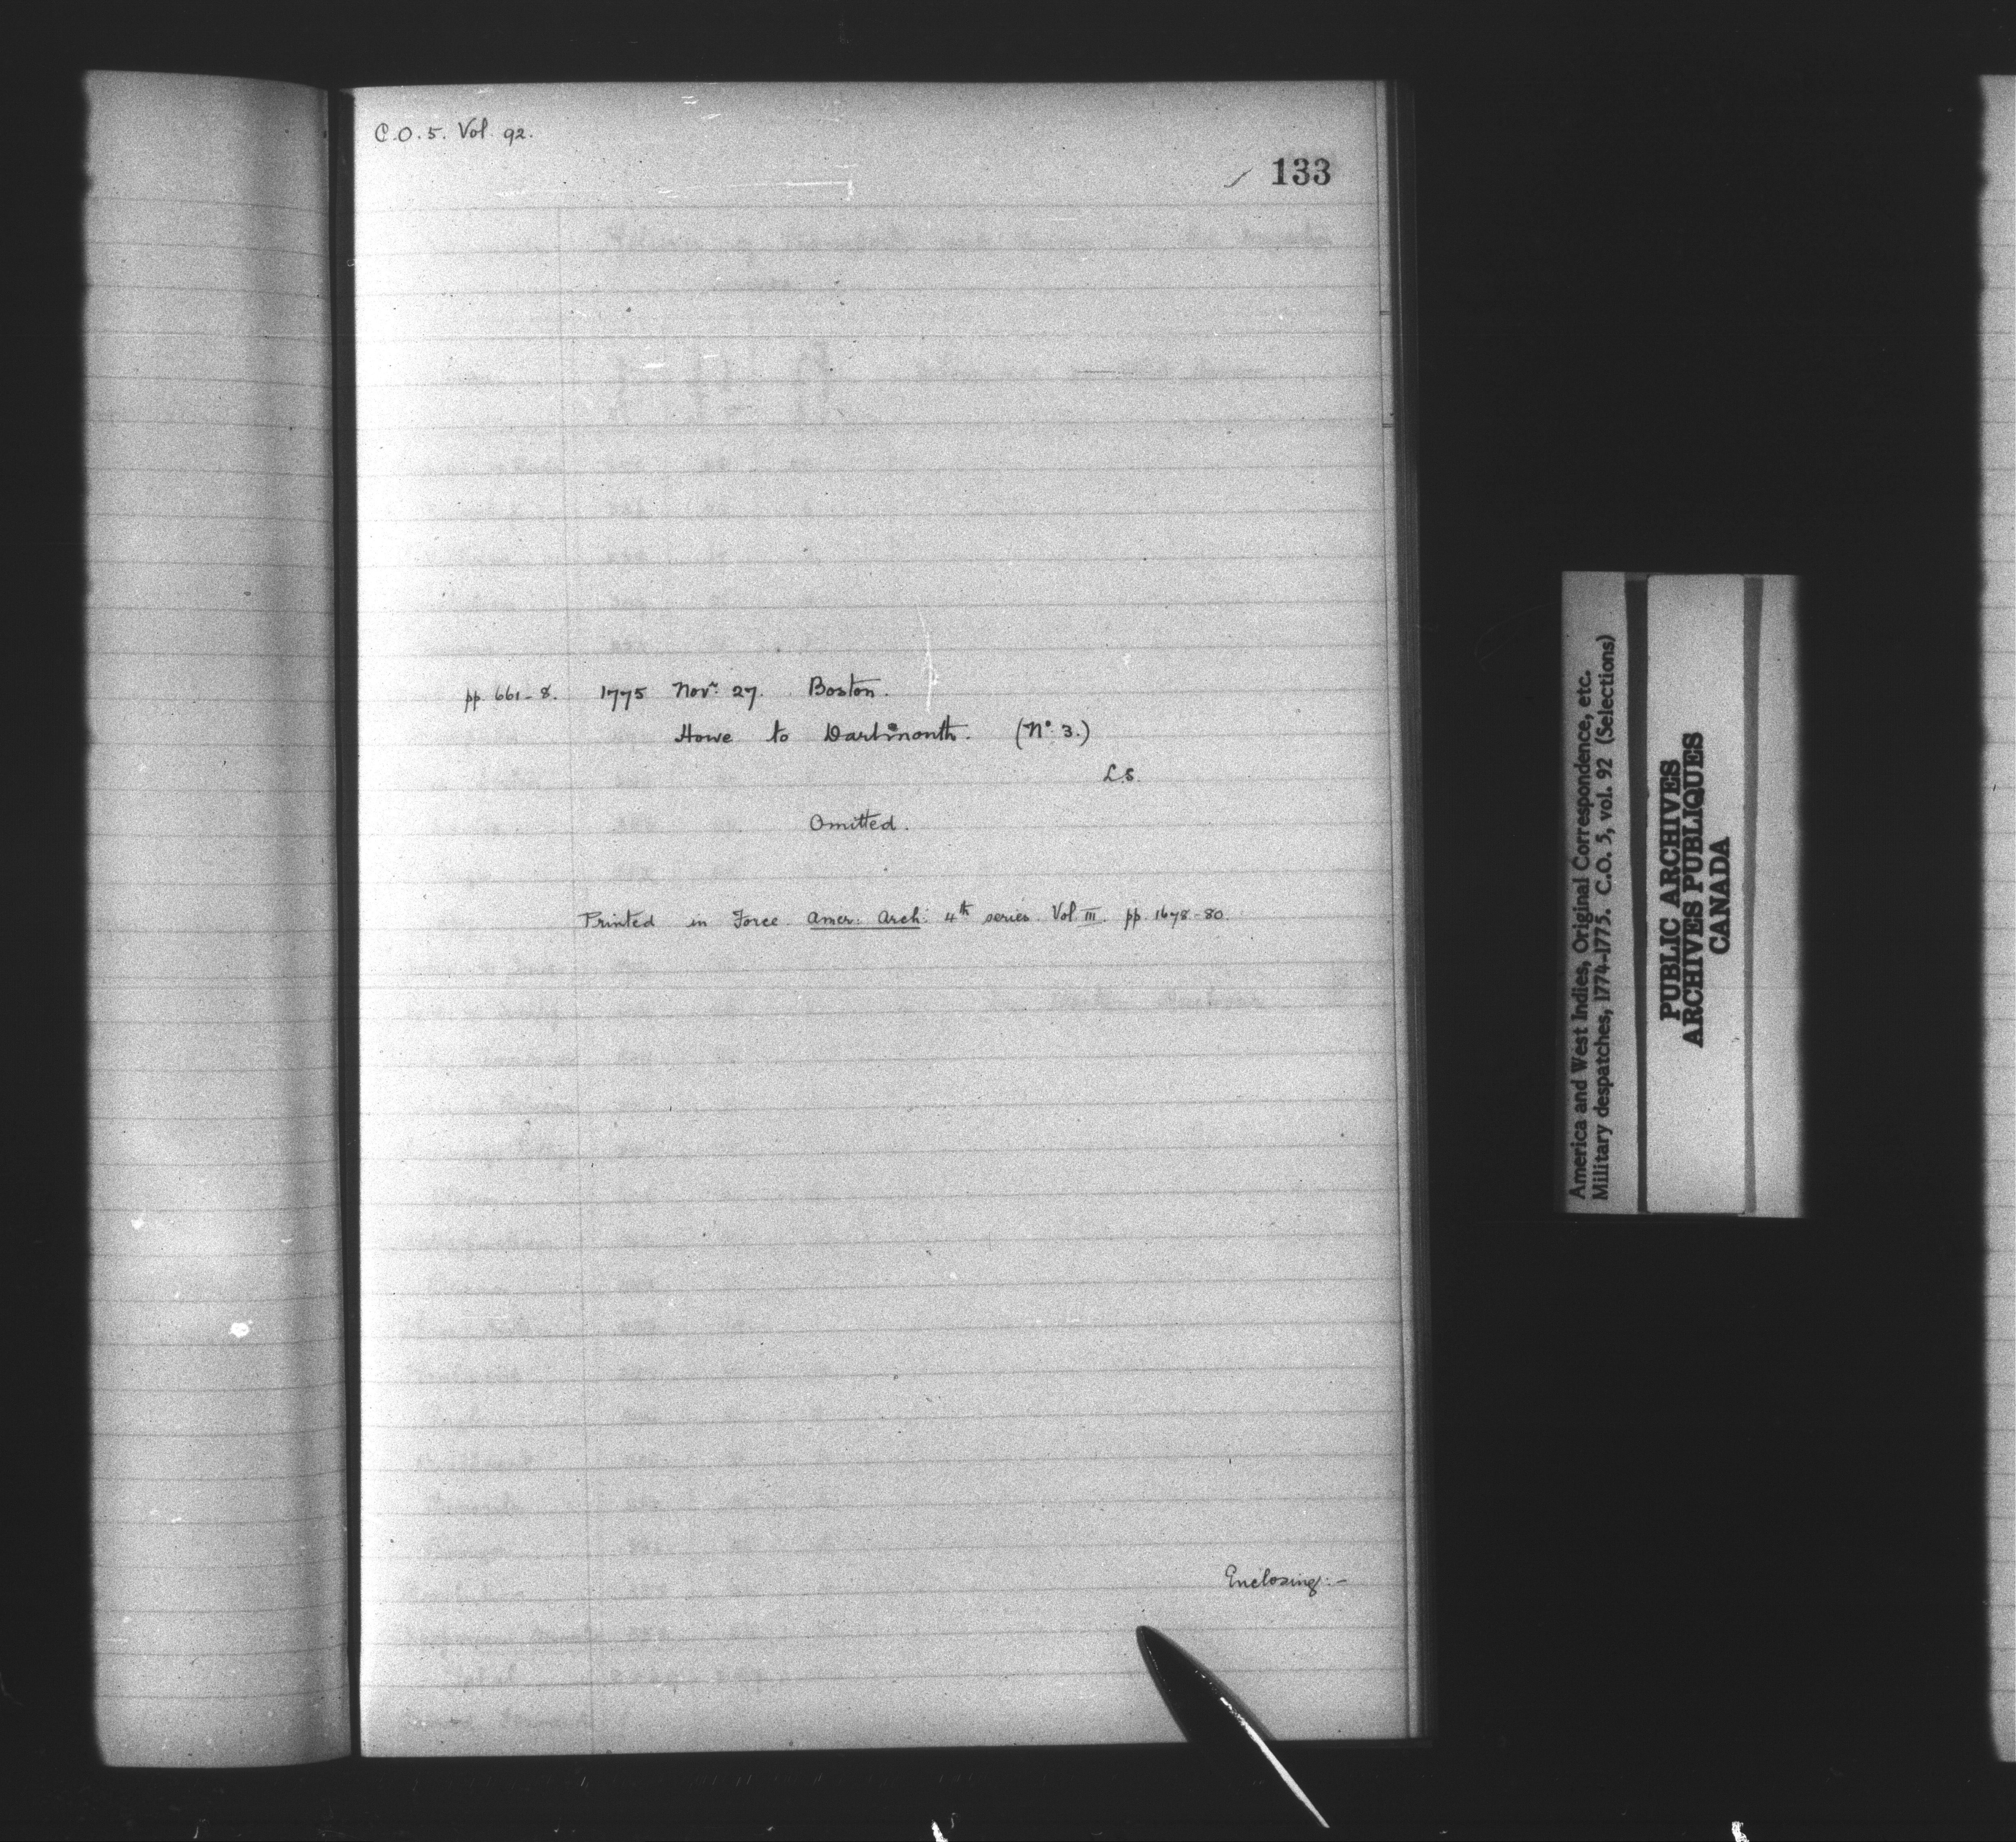 C.O.5. Vol. 92.
133
pp. 661-8. 1775 Novr. 27. Boston.
Howe to Dartmouth. (No. 3.)
L.S.
Omitted.
Printed in Force Amer: Arch: 4th series. Vol III. pp. 1678-80.
Enclosing:-
America and West Indies, Original Correspondence, etc.
Military despatches, 1774-1775. C.O. 5, vol. 92 (Selections)
PUBLIC ARCHIVES
ARCHIVES PUBLIQUES
CANADA